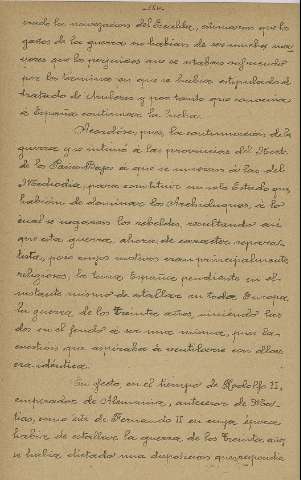 rrado la navegacion del Escalda, estimaron que los
gastos de la guerra no habian de ser mucho ma-
yores que los perjuicios que se estaban sufriendo
por los términos en que se habia estipulado el
tratado de Amberes y por tanto que convenia
á España continuar la lucha.
Acordóse, pues, la continuacion de la
guerra y se intimó á las provincias del Norte
de los Paises-Bajos á que se unieran á las del
Mediodia, para constituir un solo Estado que
habian de dominar los Archiduques, á lo
cual se negaron los rebeldes, resultando asi
que esta guerra, ahora de caracter separa-
tista, pero cuyos motivos eran principalmente
religiosos, la tenia España pendiente en el
instante mismo de estallar en toda Europa
la guerra de los Treinta años, siendo las
dos en el fondo á ser una misma, pues la
cuestion que aspiraba á ventilarse con ellas
era idéntica.
En efecto, en el tiempo de Rodolfo II,
emperador de Alemania, antecesor de Ma-
tias, como éste de Fernando II en cuya época
habia de estallar la guerra de los Treinta años,
se habia dictado una disposicion